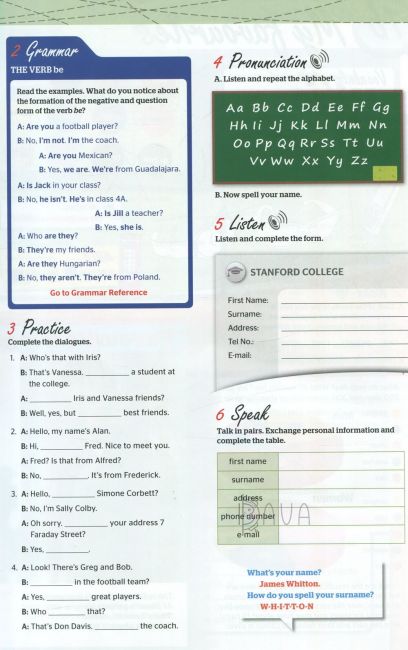 2 Grammar
THE VERB be
Read the examples. What do you notice about
the formation of the negative and question
form of the verb be?
A: Are you a football player?
B: No, I'm not. I'm the coach.
A: Are you Mexican?
B: Yes, we are. We're from Guadalajara.
A: Is Jack in your class?
B: No, he isn't. He's in class 4A.
A: Is Jill a teacher?
B: Yes, she is.
A: Who are they?
B: They're my friends.
A: Are they Hungarian?
B: No, they aren't. They're from Poland.
Go to Grammar Reference
3 Practice
Complete the dialogues.
1. A: Who's that with Iris?
B: That's Vanessa. ________ a student at
the college.
A: ________ Iris and Vanessa friends?
B: Well, yes, but ________ best friends.
2. A: Hello, my name's Alan.
B: Hi, ________ Fred. Nice to meet you.
A: Fred? Is that from Alfred?
B: No, ________. It's from Frederick.
3. A: Hello, ________ Simone Corbett?
B: No, I'm Sally Colby.
A: Oh sorry. ________ your address 7
Faraday Street?
B: Yes, ________.
4. A: Look! There's Greg and Bob.
B: ________ in the football team?
A: Yes, ________ great players.
B: Who ________ that?
A: That's Don Davis. ________ the coach.
4 Pronunciation
A. Listen and repeat the alphabet.
Aa Bb Cc Dd Ee Ff Gg
Hh Ii Jj Kk Ll Mm Nn
Oo Pp Qq Rr Ss Tt Uu
Vv Ww Xx Yy Zz
B. Now spell your name.
5 Listen
Listen and complete the form.
STANFORD COLLEGE
First Name:
Surname:
Address:
Tel No.:
E-mail:
6 Speak
Talk in pairs. Exchange personal information and
complete the table.
first name
surname
address
phone number
e-mail
What's your name?
James Whitton.
How do you spell your surname?
W-H-I-T-T-O-N